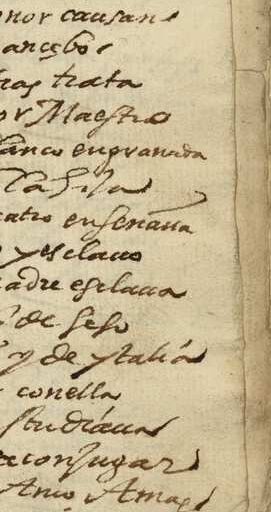 enor causan
ancebo
tras trata
or Maestro
anco engranada
Castilla
eatro enseñaua
o y esclauo
adre esclaua
de seso
y de ytalia
conella
studiaua
aconjugar
Amo Amas